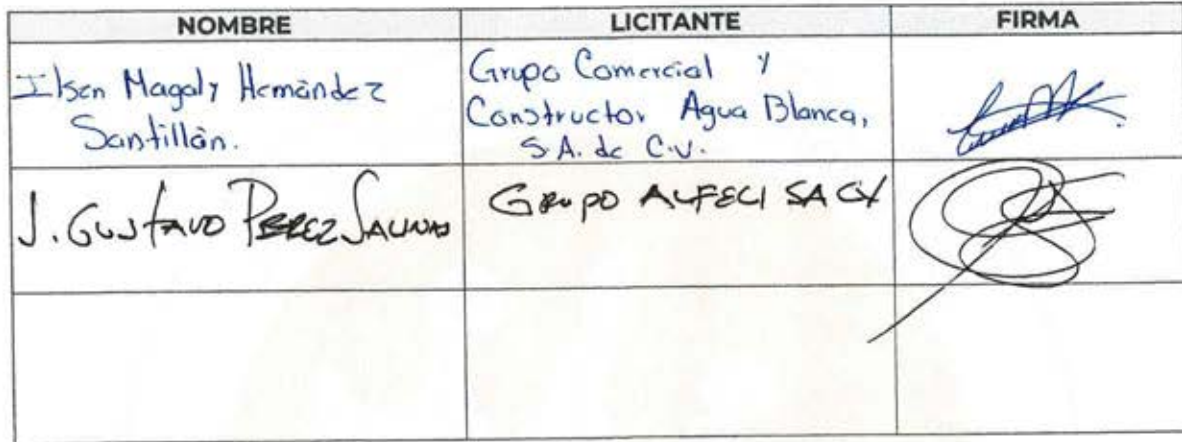 NOMBRE LICITANTE FIRMA
Ilsen Magaly Hernández
Santillán.
Grupo Comercial y
Constructor Agua Blanca,
S.A. de C.V.
J. GUSTAVO PEREZ SALINAS
GRUPO ALFECI SA CV